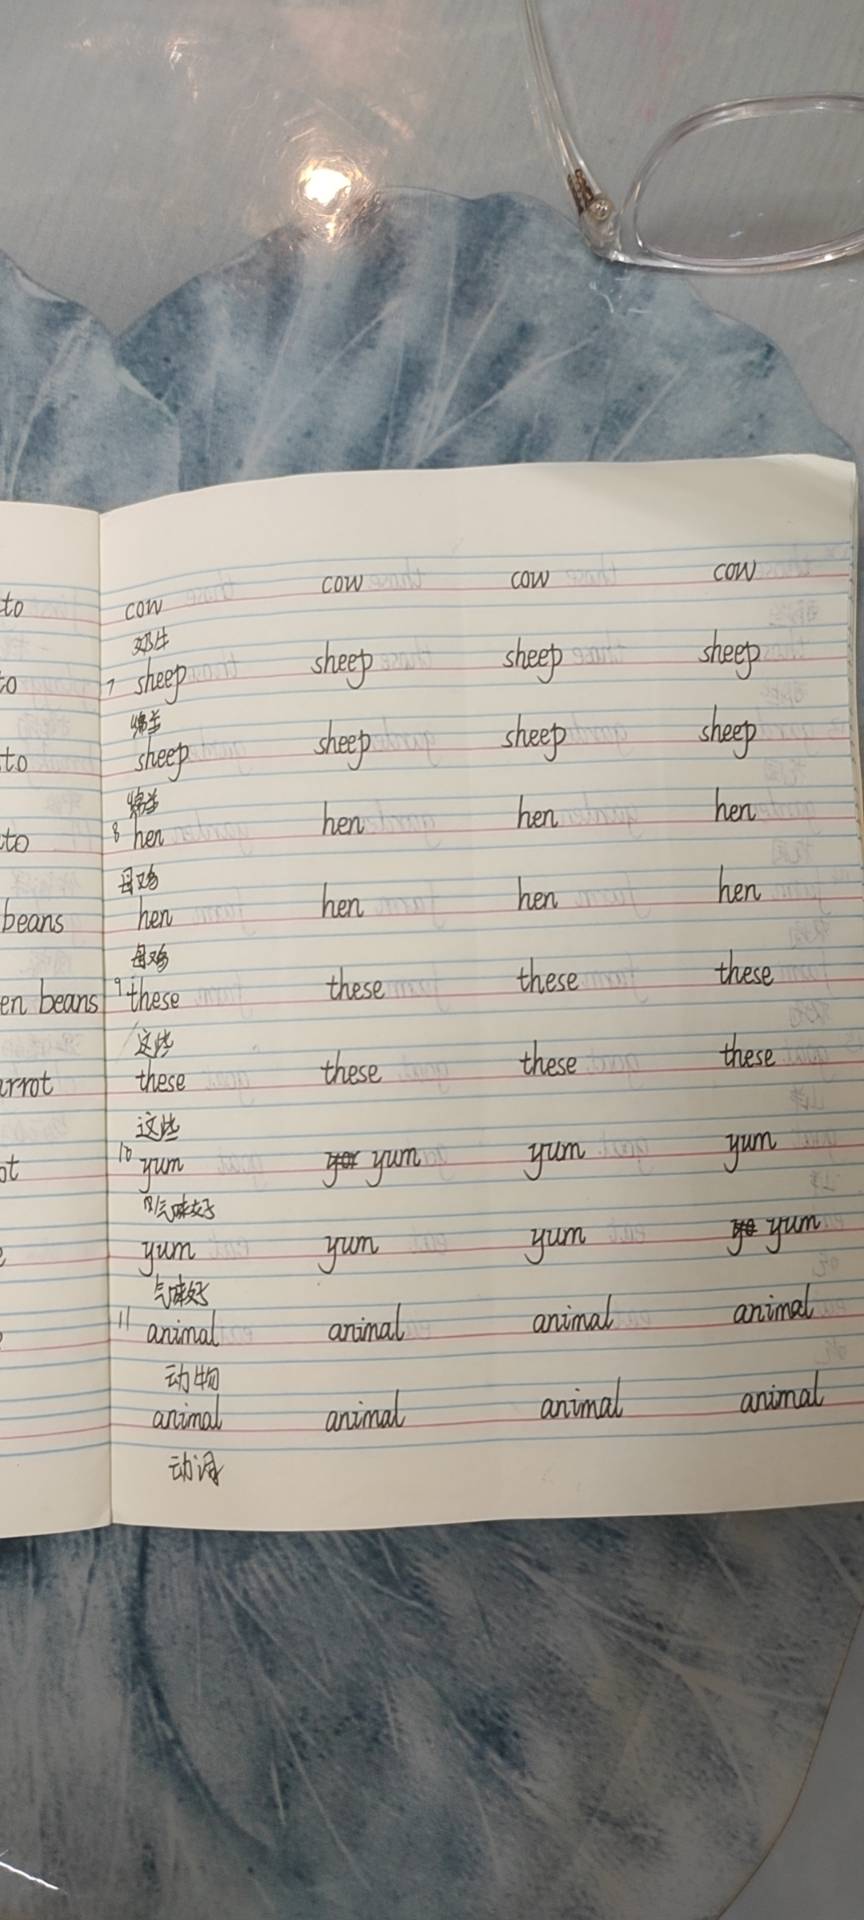 to
to
to
to
beans
en beans
arrot
ot
cow cow cow cow
奶牛
7 sheep sheep sheep sheep
绵羊
sheep sheep sheep sheep
绵羊
8 hen hen hen hen
母鸡
hen hen hen hen
母鸡
9 these these these these
这些
these these these these
这些
10 yum yum yum yum
气味好
yum yum yum yum
气味好
11 animal animal animal animal
动物
animal animal animal animal
动词